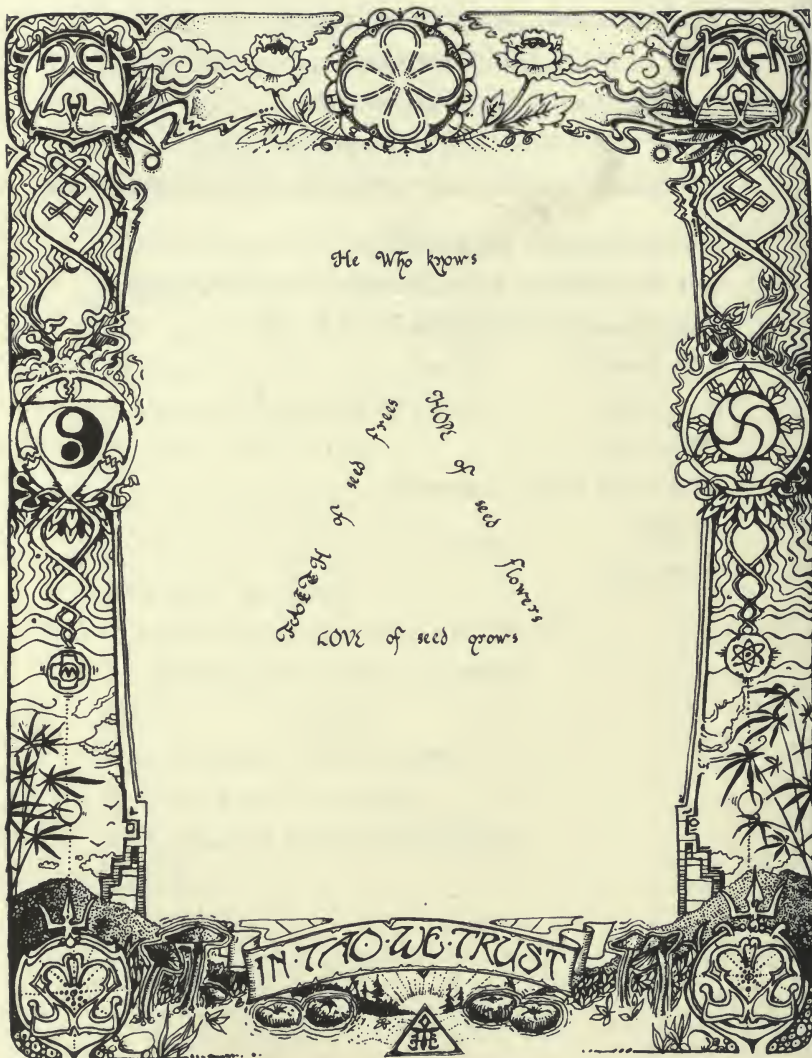 He Who knows
FAITH of seed frees
HOPE of seed flowers
LOVE of seed grows
IN·TAO·WE·TRUST